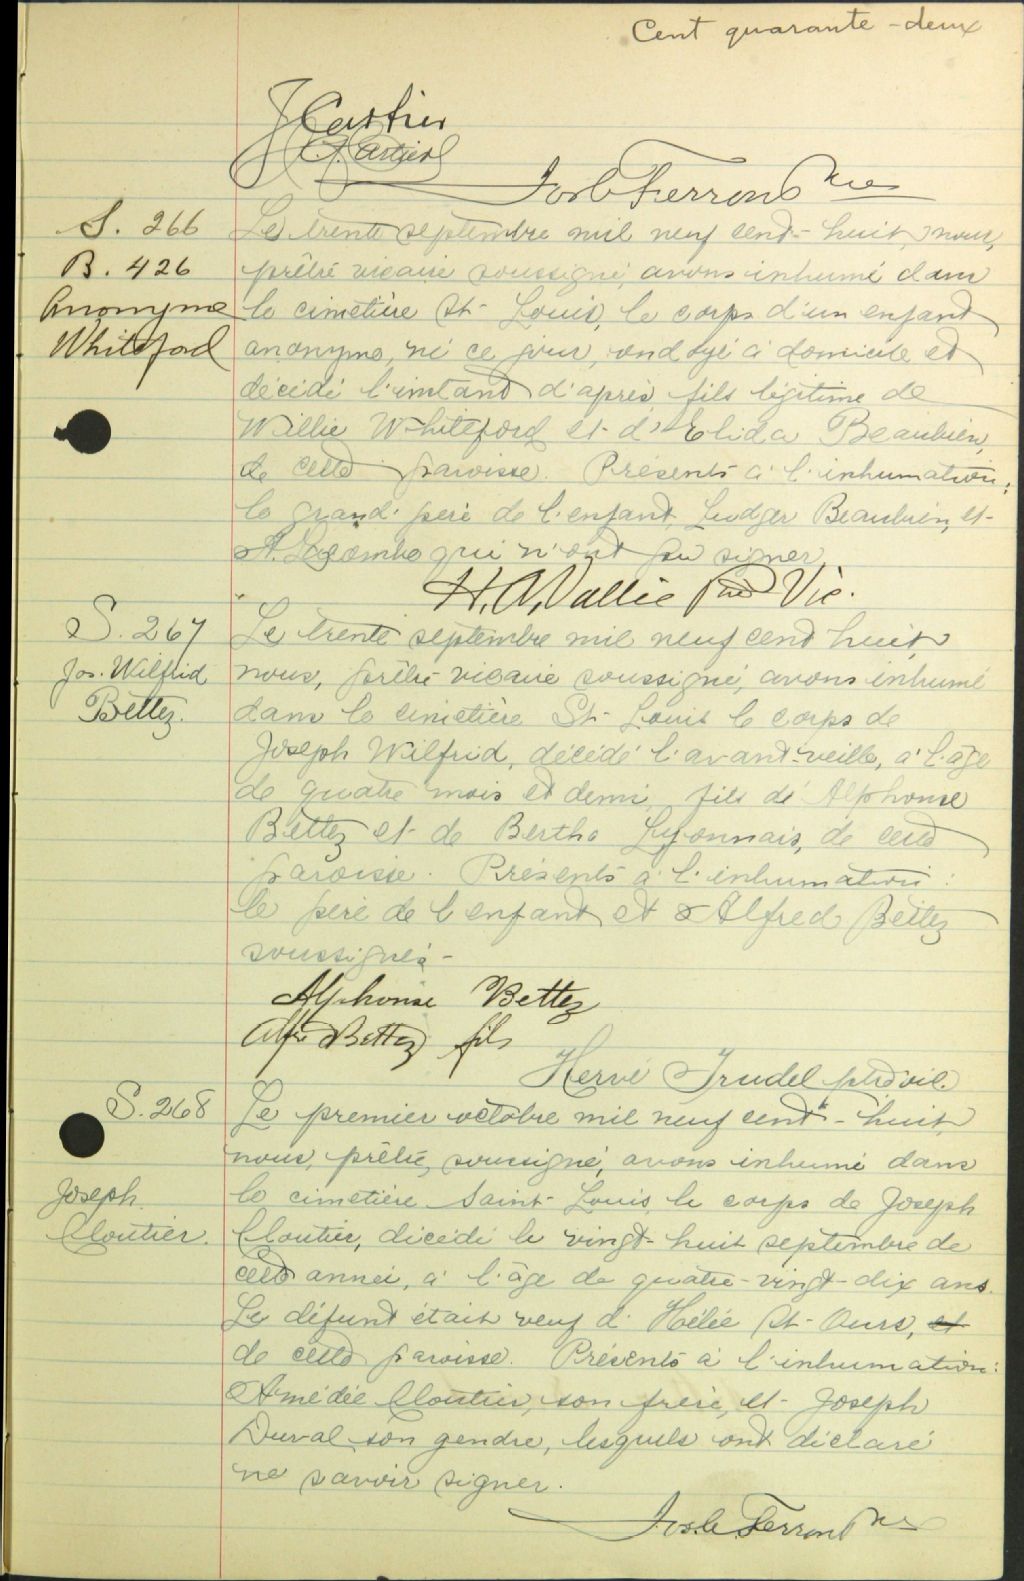 Cent quarante-deux
J Cartier
Jos. C. Ferron Ptre
S. 266
B. 426
Anonyme
Whiteford
Le trente septembre mil neuf cent-huit, nous,
prêtre vicaire soussigné, avons inhumé dans
le cimetière St-Louis, le corps d'un enfant
anonyme, né ce jour, ondoyé à domicile et
décédé l'instant d'après, fils légitime de
Willie Whiteford et d'Elida Beaubien,
de cette paroisse. Présents à l'inhumation:
le grand'père de l'enfant, Ludger Beaubien, et
A. Lacombe qui n'ont pu signer.
H. A. Vallée Ptre Vic.
S. 267
Jos. Wilfrid
Bettez.
Le trente septembre mil neuf cent huit,
nous, prêtre vicaire soussigné, avons inhumé
dans le cimetière St-Louis le corps de
Joseph Wilfrid, décédé l'avant-veille, à l'âge
de quatre mois et demi, fils de Alphonse
Bettez et de Bertha Lyonnais, de cette
paroisse. Présents à l'inhumation:
le père de l'enfant et Alfred Bettez
soussignés-
Alphonse Bettez
Alf. Bettez fils
Hervé Trudel ptre vic.
S. 268
Joseph
Cloutier.
Le premier octobre mil neuf cent-huit,
nous, prêtre, soussigné, avons inhumé dans
le cimetière Saint-Louis, le corps de Joseph
Cloutier, décédé le vingt-huit septembre de
cette année, à l'âge de quatre-vingt-dix ans.
Le défunt était veuf d' St-Ours, et
de cette paroisse. Présents à l'inhumation:
Amédée Cloutier, son frère, et Joseph
Duval son gendre, lesquels ont déclaré
ne savoir signer.
Jos. C. Ferron Ptre